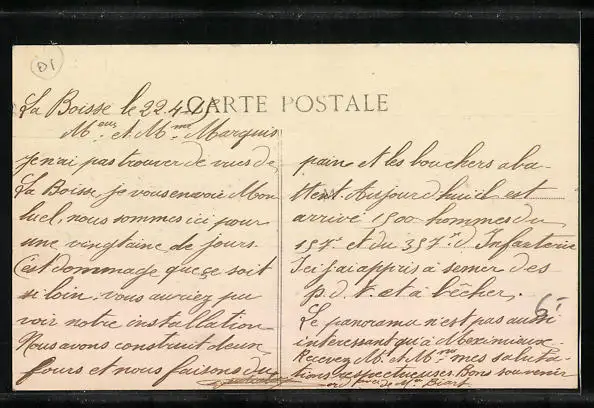 01
CARTE POSTALE
La Boisse le 22.4
Meur et Mme Marquis
Je n'ai pas trouver de vues de
La Boisse, je vous envoie Mon
luel, nous sommes ici pour
une vingtaine de jours.
C'est dommage que ce soit
si loin. vous auriez pu
voir notre installation
Nous avons construit deux
fours et nous faisons du
pain et les bouchers aba-
ttent. Aujourd'hui il est
arrivé 1500 hommes du
157e et du 357e d'Infanterie
Ici j'ai appris à semer des
p. d. t. et à bêcher.
Le panorama n'est pas aussi
interessant qu'à Meximieux.
Recevez Mr et Mme mes saluta-
tions respectueuses. Bon souvenir
de Mr Biart
6-